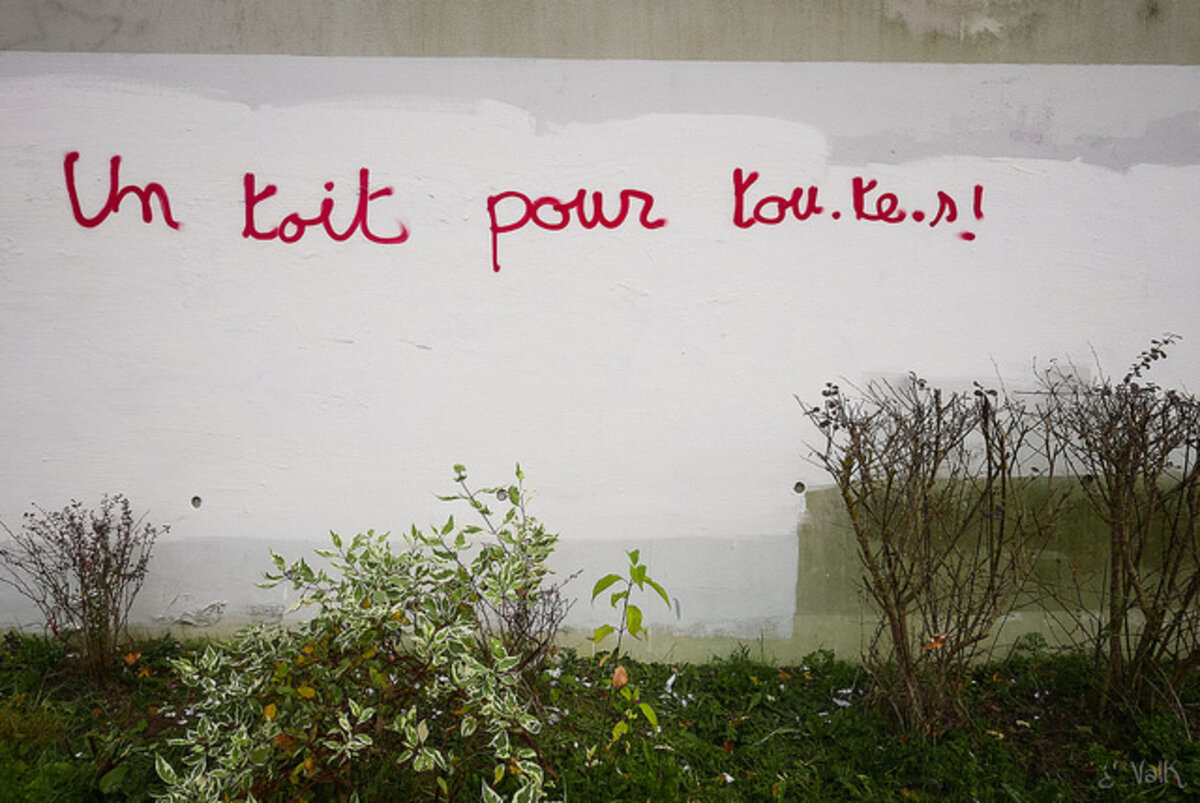 Un toit pour tou.te.s!